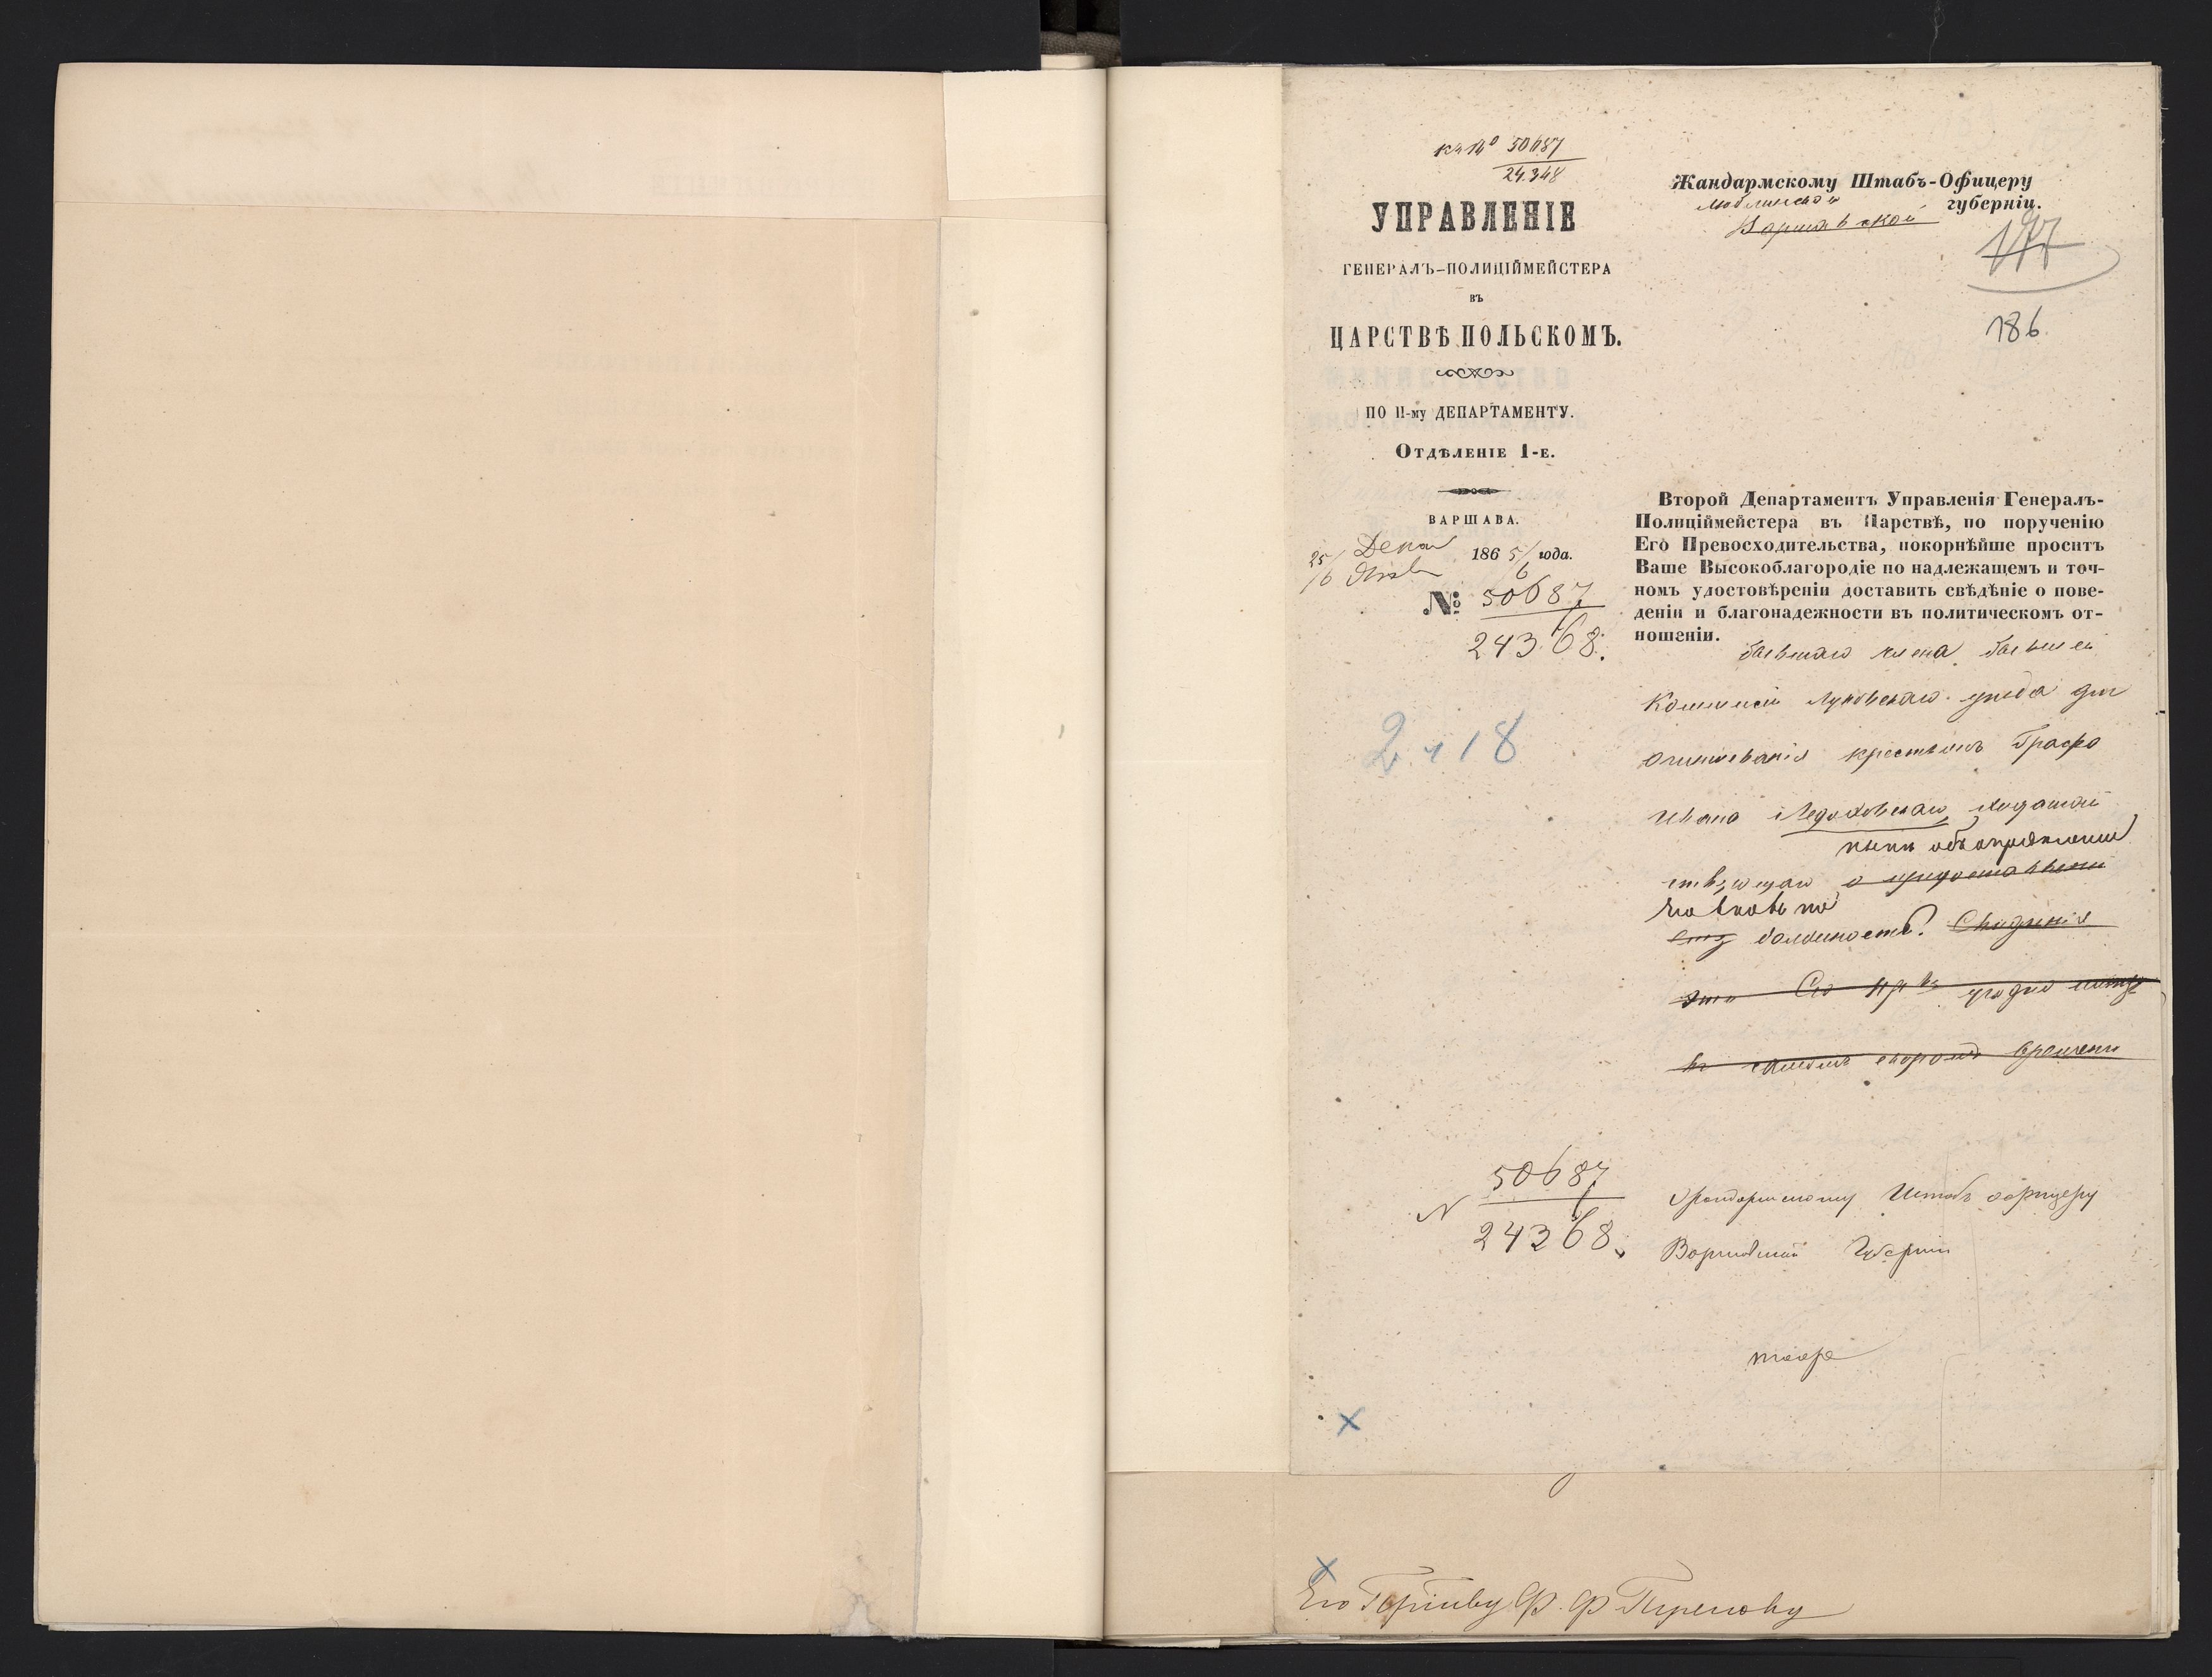 къ № 50687
24.348
УПРАВЛЕНІЕ
ГЕНЕРАЛЪ-ПОЛИЦІЙМЕЙСТЕРА
ВЪ
ЦАРСТВѢ ПОЛЬСКОМЪ.
ПО II-му ДЕПАРТАМЕНТУ.
Отдѣленіе 1-е.
ВАРШАВА.
25/6 Декаб Янв 1865/6 года.
№ 50687
24368.
2 ч 18
Жандармскому Штабъ-Офицеру
Люблинской губерніи.
Варшавской
177
186
Второй Департаментъ Управленія Генералъ-
Полиціймейстера въ Царствѣ, по порученію
Его Превосходительства, покорнѣйше проситъ
Ваше Высокоблагородіе по надлежащемъ и точ-
номъ удостовѣреніи доставить свѣдѣніе о пове-
деніи и благонадежности въ политическомъ от-
ношеніи.
бывшаго члена бывшей
Коммисіи Луковскаго уѣзда для
очиншеванія крестьянъ Графа
Ивана Ледоховскаго, ходатай
ствующаго о предоставленіи
ему должность. Свѣденія
эти
въ самомъ скоромъ времени
№ 50687
24368.
Жандармскому Штабъ офицеру
Варшавской Губерніи
тоже
Его Ф. Ф.